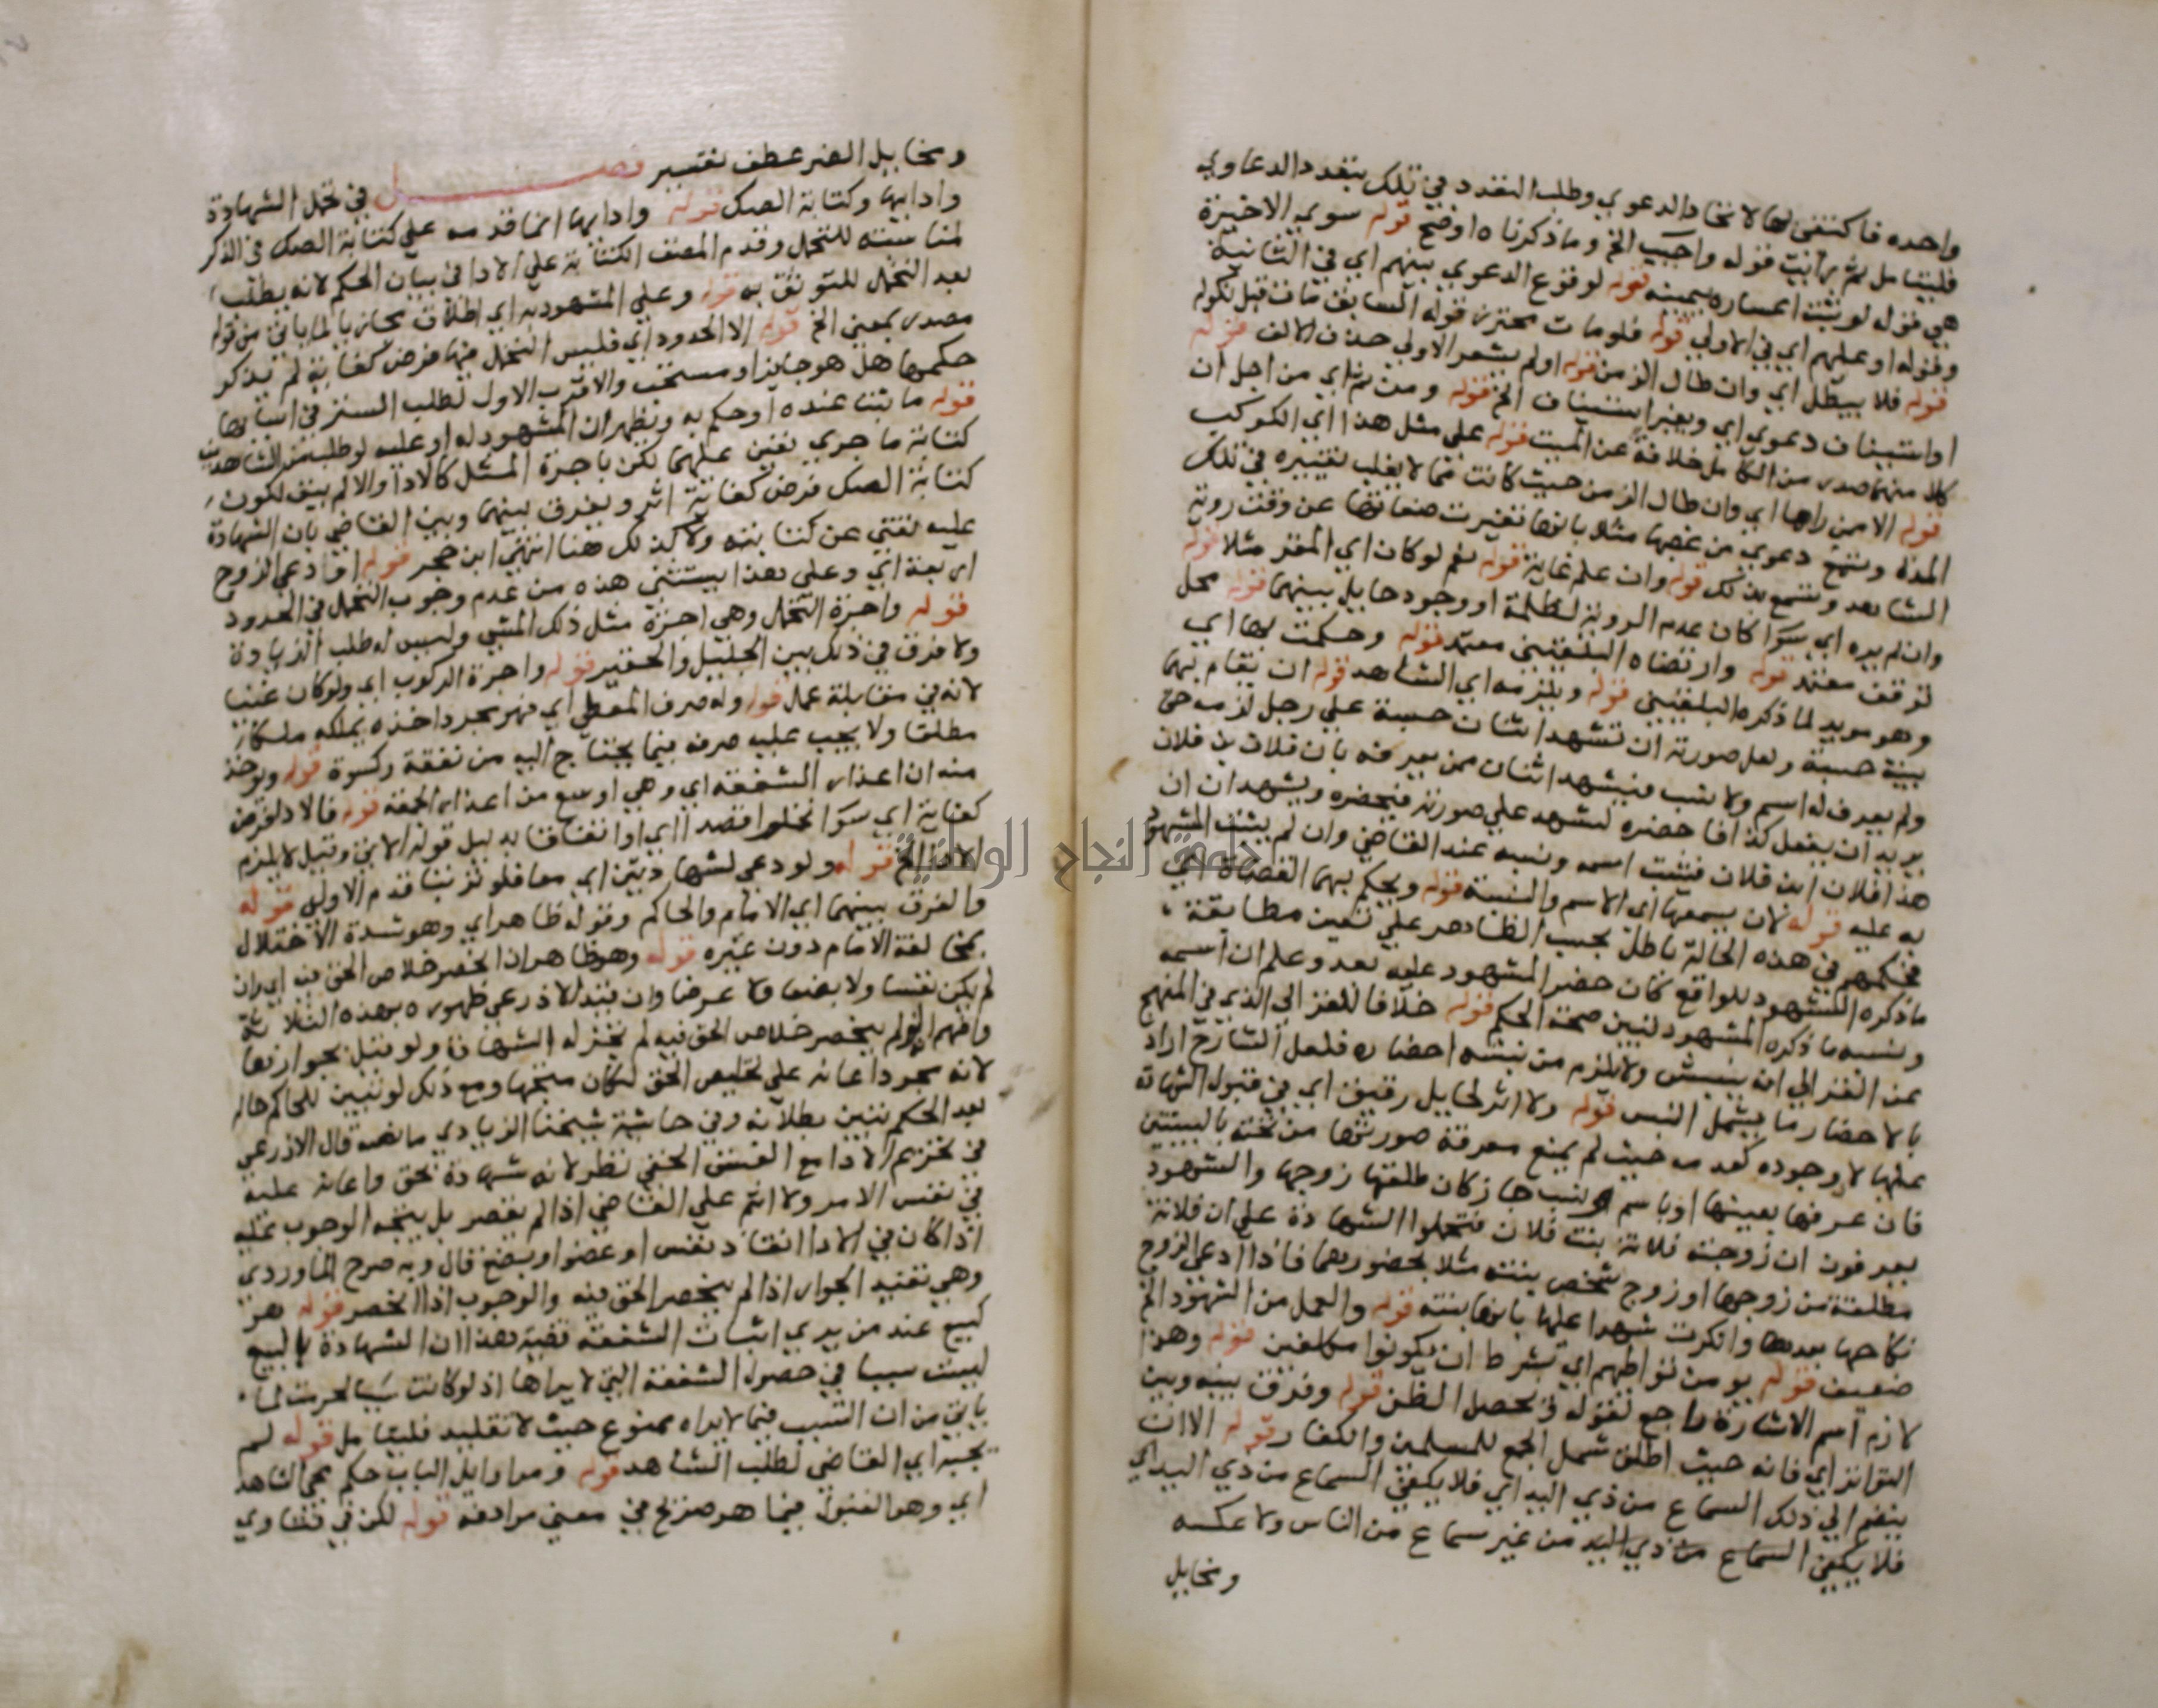 واحده فاكتفى بها لاتحاد الدعوي وطلب التعدد في تلك بتعدد الدعاوي
فليتامل ثم رأيت قوله واجيب الخ وما ذكرناه اوضح قوله سوي الاخيرة
هي قوله لو ثبت اعساره بيمينه قوله لوقوع الدعوي بينهم اي في الثانية
وقوله او عليهم اي في الاولي قوله فلو مات محترز قوله السابق مات قبل نكوله
قوله فلا يبطل اي وان طال الزمن قوله اولم يشعر الاولي حذف الالف قوله
او استيناف دعوي اي وبغير استيناف الخ قوله ومن ثم اي من اجل ان
كلا منهما صدر من الكامل خلافة عن الميت قوله علي مثل هذا اي الكوكب
قوله الا من راها اي وان طال الزمن حيث كانت مما لا يغلب تغييره في تلك
المدة وتسمع دعوي من غصبها مثلا بانها تغيرت صفاتها عن وقت روية
الشاهد وتسمع بذلك قوله وان علم غايته قوله نعم لو كان اي المقر مثلا قوله
وان لم يره اي سوا كان عدم الروية لظلمة او وجود حايل بينهما قوله محل
توقف معتمد قوله وارتضاه البلقيني معتمد قوله وحكمت بها اي
وهو مويد لما ذكره البلقيني قوله ويلزمه اي الشاهد قوله ان تقام بهما
بينة حسبة ولعل صورته ان تشهد اثنان حسبة علي رجل لزمه حق
ولم يعرف له اسم ولا نسب فيشهد اثنان ممن يعرفه بان فلان بن فلان
يريد ان يفعل كذا فاحضره لنشهد علي صورته فيحضره ويشهدان ان
هذا فلان ابن فلان فيثبت اسمه ونسبه عند القاضي وان لم يثبت المشهود
به عليه قوله لان يسمعها اي الاسم والنسبة قوله ويحكم بهما القضاة اي
فحكمهم في هذه الحالة باطل بحسب الظاهر علي تعين مطابقة
ما ذكره الشهود للواقع كان حضر المشهود عليه بعد وعلم ان اسمه
ونسبه ما ذكره المشهود لتبين صحة الحكم قوله خلافا للغزالي الذي في المنهج
عن الغزالي انه ينبش ولا يلزم من نبشه احضاره فلعل الشارح اراد
بالاحضار ما يشمل النبس قوله ولا اثر لحايل رقيق اي في قبول الشهادة
عليها لا وجوده كعدمه حيث لم يمنع معرفة صورتها من تحته باليقين
فان عرفها بعينها او باسم او نسب جاز كان طلقها زوجها والشهود
يعرفون ان زوجته فلانة بنت فلان فتحملوا الشهادة علي ان فلانة
مطلقة من زوجها او زوج شخص بنته مثلا بحضورهما فاذا ادعي الزوج
نكاحها بعدها وانكرت شهدا عليها بانها بنته قوله والعمل من الشهود الخ
ضعيف قوله يومن تواطيهم اي بشرط ان يكونوا مكلفين قوله وهذا
لازم اسم الاشارة راجع لقوله فيحصل الظن قوله وفرق بينه وبين
التواتر اي فانه حيث اطلق شمل الجمع للمسلمين والكفار قوله الا ان
ينضم الي ذلك السماع من ذي اليد اي فلا يكفي السماع من ذي اليد اي
فلا يكفي السماع من ذي اليد من غير سماع من الناس ولا عكسه
ومخايل
ومخايل الضر عطف تفسير فصل في تحمل الشهادة
وادايها وكتابة الصك قوله وادايها انما قدمه علي كتابة الصك في الذكر
لمناسبته للتحمل وقدم المصنف الكتابة علي الادا في بيان الحكم لانه يطلب
بعد التحمل للتوثق به قوله وعلي المشهود به اي اطلاق مجازي لما ياتي من قوله
مصدر بمعني الخ قوله الا الحدود اي فليس التحمل فيها فرض كفاية لم يذكر
حكمها هل هو جايز او مستحب والاقرب الاول لطلب الستر في اسبابها
قوله ما ثبتا عنده او حكم به ويظهر ان المشهود له او عليه لو طلب من الشاهدين
كتابة ما جري تعين عليهما لكن باجرة المثل كالادا والا لم يتعين لكون
كتابة الصك فرض كفاية اثر ويفرق بينهما وبين القاضي بان الشهادة
عليه تغني عن كتابته ولا كذلك هنا انتهي ابن حجر قوله او ادعي الزوج
اربعة اي وعلي هذا يستثني هذه من عدم وجوب التحمل في الحدود
قوله واجرة التحمل وهي اجرة مثل ذلك المشي وليس له طلب الزيادة
ولا فرق في ذلك بين الجليل والحقير قوله واجرة الركوب اي ولو كان غنيا
لانه في مقابلة عمل قوله وله صرف المعطي اي فهو بمجرد اخذه يملكه ملكا
مطلقا ولا يجب عليه صرفه فيما يحتاج اليه من نفقة وكسوة قوله ويوخذ
منه ان اعذار الشفعة اي وهي اوسع من اعذار الجمعة قوله فالادا فرض
كفاية اي سوا تحملوا قصدا اي او اتفاقا بدليل قوله الاتي وقيل لا يلزم
الادا الخ قوله ولو دعي لشهادتين اي معا فلو ترتبا قدم الاولي قوله
والفرق بينهما اي الامام والحاكم وقوله ظاهر اي وهو شدة الاختلال
بمخالفة الامام دون غيره قوله وهو ظاهر ان انحصر خلاص الحق فيه اي وان
لم يكن نفسا ولا بضعا ولا عرضا وان قيد الاذرعي ظهوره بهذه الثلاثة
وافهم انه لو لم ينحصر خلاص الحق فيه لم تجز له الشهادة ولو قيل بجوازها
لانه مجرد اعانة علي تخليص الحق لكان متجها ومع ذلك لو تبين للحاكم حاله
بعد الحكم تبين بطلانه وفي حاشية شيخنا الزيادي ما نصه قال الاذرعي
في تحريم الادا مع الفسق الخفي نظر لانه شهادة بحق واعانة عليه
في نفس الامر ولا اثم علي القاضي اذا لم يقصر بل يتجه الوجوب عليه
اذا كان في الادا انقاذ نفس او عضو او بضع قال وبه صرح الماوردي
وهي تفيد الجواز اذا لم ينحصر الحق فيه والوجوب اذا انحصر قوله هو
كبيع عند من يري اثبات الشفعة قضية هذا ان الشهادة بالبيع
ليست سببا في حصول الشفعة التي لا يراها اذ لو كانت سببا لحرمت لما
ياتي من ان التسبب فيما لا يراه ممنوع حيث لا تقليد فليتامل قوله لم
يجبه اي القاضي لطلب الشاهد قوله ومر اوايل الباب حكم عمي الشاهد
اي وهو القبول فيما هو صريح في معني مرادفه قوله لكن في فتاوي